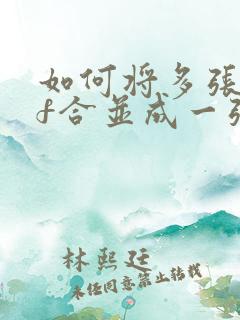 如何将多張
f合並成一張
林熙廷
未经同意禁止转载